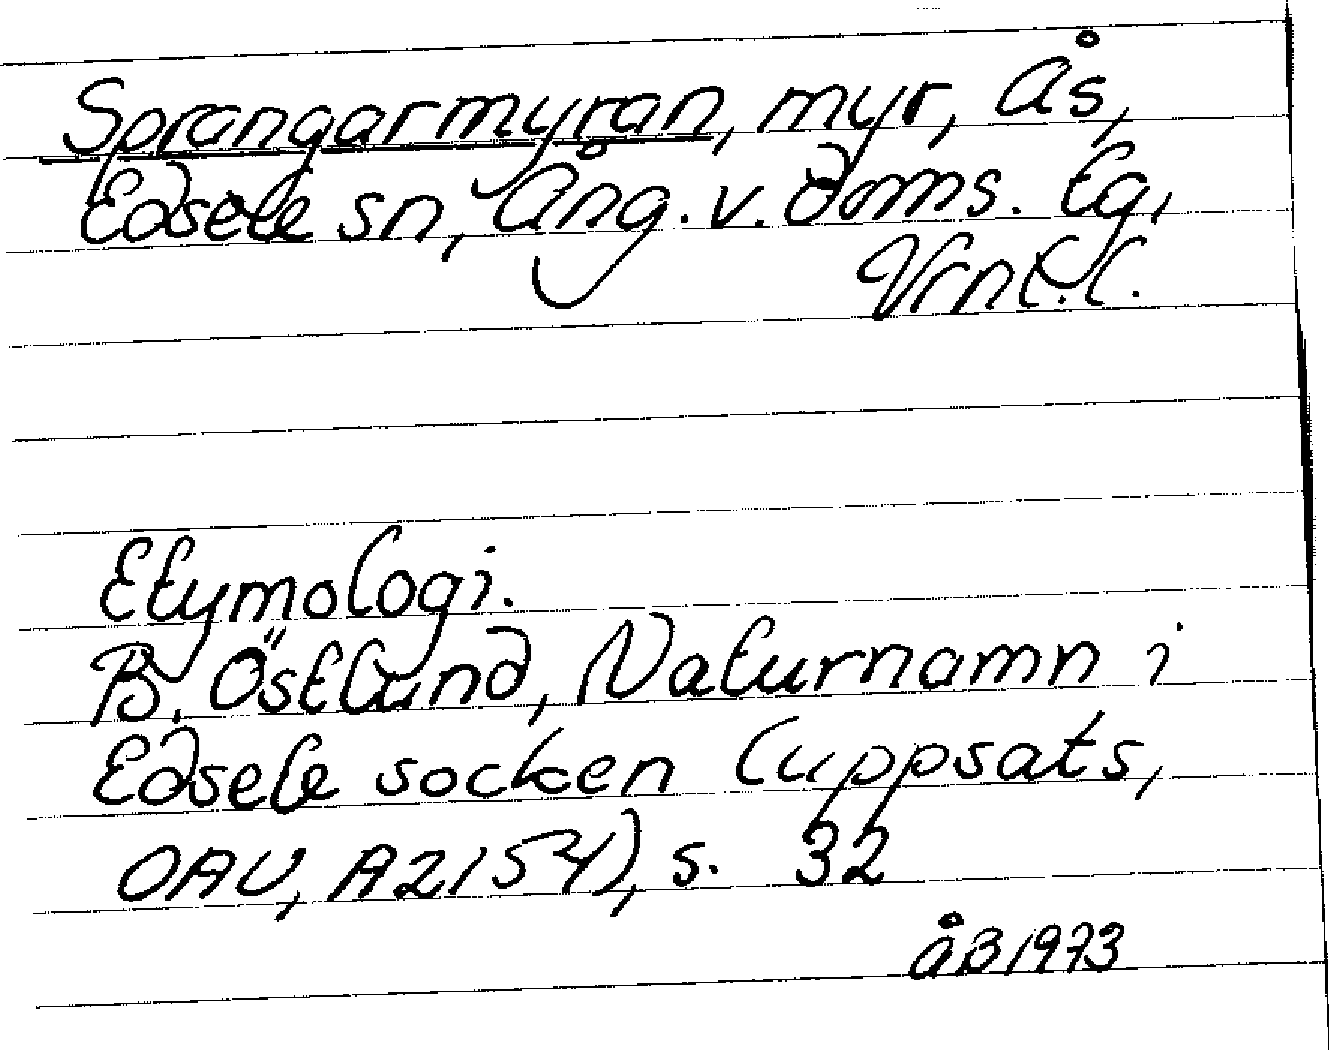 Sprangarmyran, myr, Ås,
Edsele sn, Ång. v. doms. Eg,
Vrnl.l.
Etymologi.
B. Östlund, Naturnamn i
Edsele socken (uppsats,
OAU, A2154), s. 32
ÅB 1973